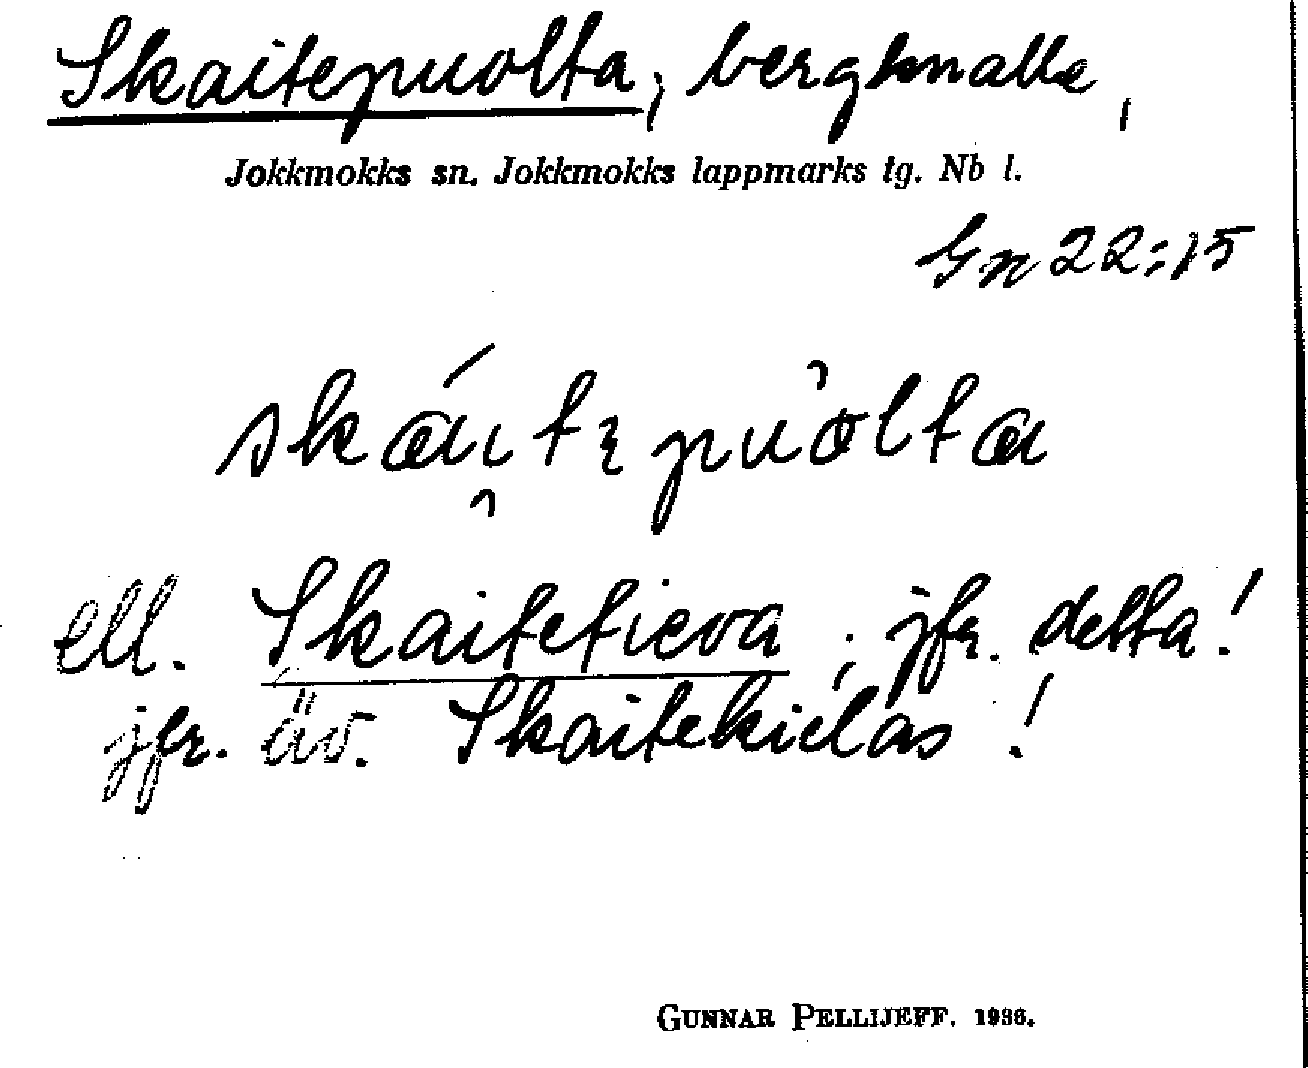 Skaitepuolta, bergknalle,
Jokkmokks sn. Jokkmokks lappmarks tg. Nb l.
Gn 22:15
ell. Skaitetieva; jfr. detta!
jfr. äv. Skaitekielas!
GUNNAR PELLIJEFF. 1936.